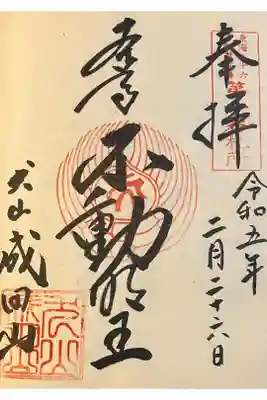 奉拝
令和五年
二月二十六日
本尊 不動明王
犬山成田山